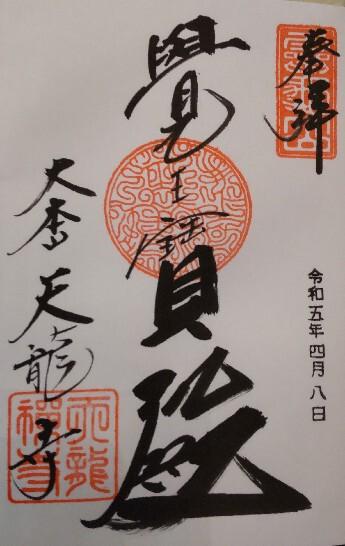 奉拝
令和五年四月八日
覺王寶殿
大本山天龍寺
天龍禅寺